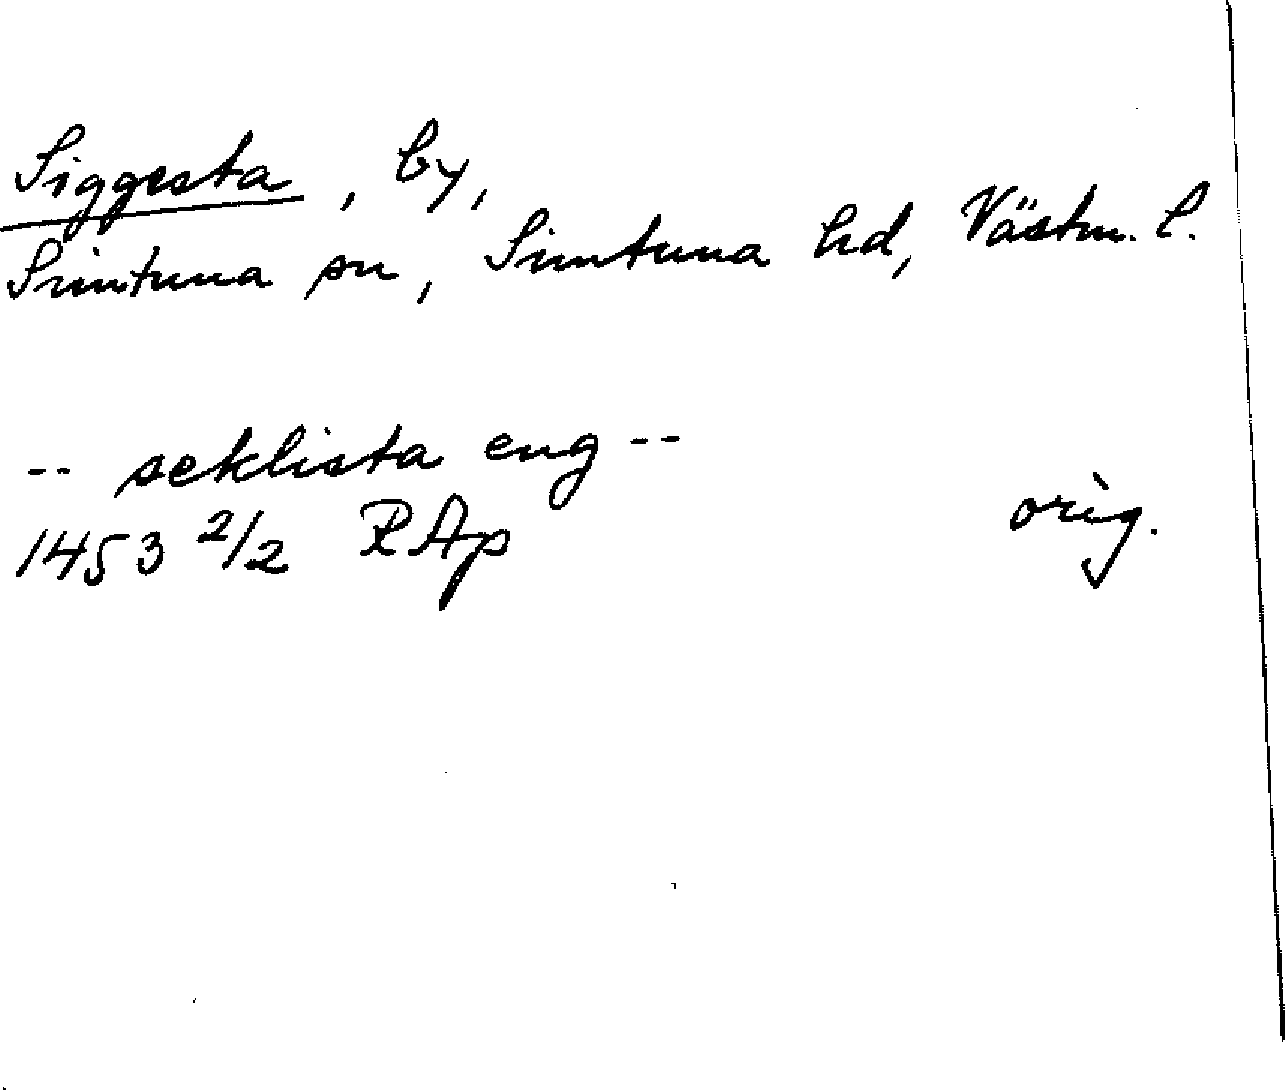 Siggesta, by,
Simtuna sn, Simtuna hd, Västm. l.
-- seklista eng --
1453 2/2 RAp orig.